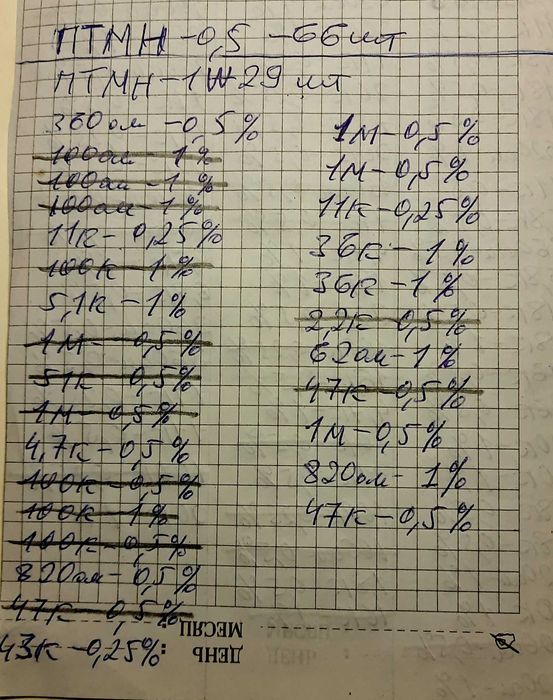 ПТМН-0,5 -66шт
ПТМН-1W 29 шт
360ом -0,5%
100ом -1%
100ом -1%
100ом -1%
11к- 0,25%
100к -1%
5,1к -1%
1М- 0,5%
51к 0,5%
1М- 0,5%
4,7к -0,5%
100к -0,5%
100к 1%
100к -0,5%
820ом-0,5%
47к 0,5%
43к -0,25%
1М-0,5%
1М-0,5%
11к-0,25%
36к -1%
36к -1%
2,2к 0,5%
620ом-1%
47к-0,5%
1М-0,5%
820ом- 1%
47к -0,5%
МЕСЯЦ
ДЕНЬ :